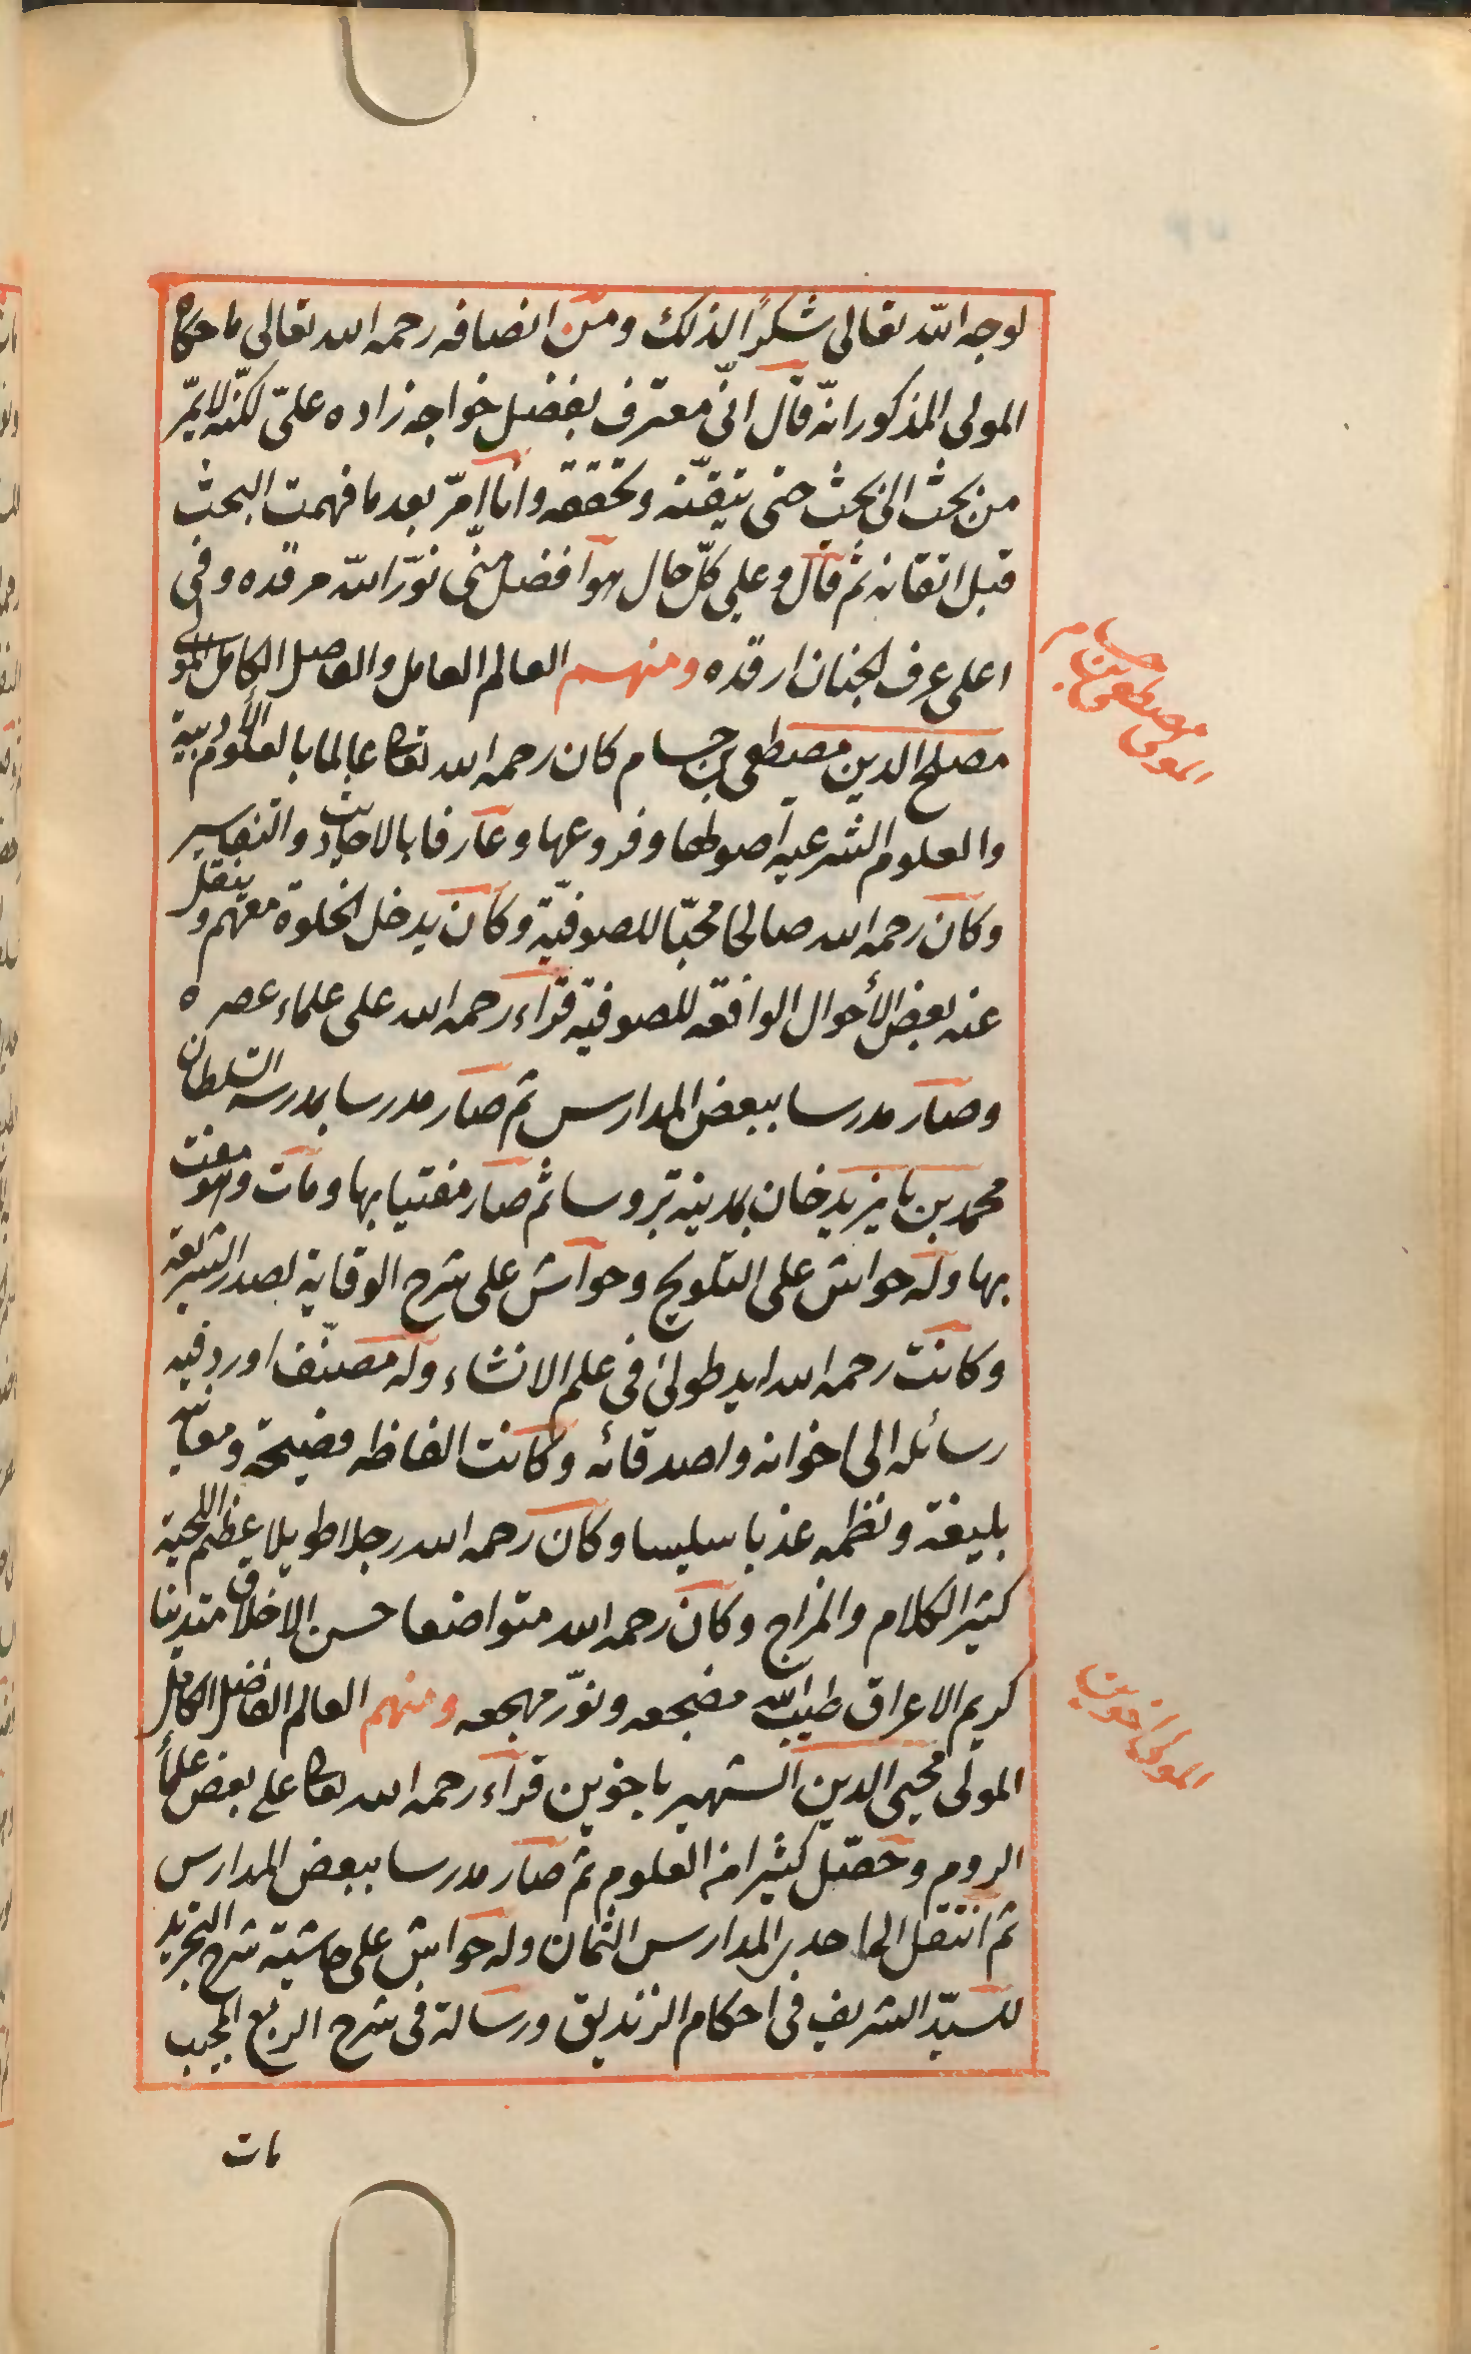 لوجه الله تعالى شكرا لذلك ومن انصافه رحمه الله تعالى ما حكاه
المولى المذكور انّه قال انّي معترف بفضل خواجه زاده علىّ لكنّه لا يمّر
من بحث الى بحث حتى يتيقّنه وتحققه وانا امرّ بعد ما فهمت البحث
قبل اتقانه ثم قال وعلى كلّ حال هو افضل منّى نوّر الله مرقده وفى
اعلى غرف الجنان ارقده ومنهم العالم العامل والفاضل الكامل المولى
مصلح الدين مصطفى بن حسام كان رحمه الله تعالى عالما بالعلوم الأدبية
والعلوم الشرعيه اصولها وفروعها وعارفا بالاحاديث والتفاسير
وكان رحمه الله صالحا محبّا للصوفيّة وكان يدخل الخلوة معهم وينقل
عنه بعض الأحوال الواقعه للصوفية قراء رحمه الله على علماء عصره
وصار مدرسا ببعض المدارس ثم صار مدرسا بمدرسه السلطان
محمد بن بايزيد خان بمدينة بروسا ثم صار مفتيا بها ومات وهو مفت
بها وله حواش على التلويح وحواش على شرح الوقاية لصدر الشريعة
وكانت رحمه الله يد طولىٰ فى علم الانشاء وله مصنّف اورد فيه
رسائله الى اخوانه واصدقائه وكانت الفاظه فصيحة ومعانيه
بليغة ونظمه عذبا سليسا وكان رحمه الله رجلا طويلا عظيم اللحية
كثير الكلام والمزاح وكان رحمه الله متواضعا حسن الاخلاق متدينا
كريم الاعراق طيب الله مضجعه ونوّر مهجعه ومنهم العالم الفاضل الكامل
المولى محيى الدين الشهير باخوين قراء رحمه الله تعالى على بعض علماء
الروم وحصّل كثيرا من العلوم ثم صار مدرسا ببعض المدارس
ثم انتقل الى احدى المدارس الثمان وله حواش على حاشية شرح التجريد
للسيّد الشريف فى احكام الزنديق ورسالة فى شرح الربع المجيب
مات
المولى مصطفى بن حسام
المولى اخوين